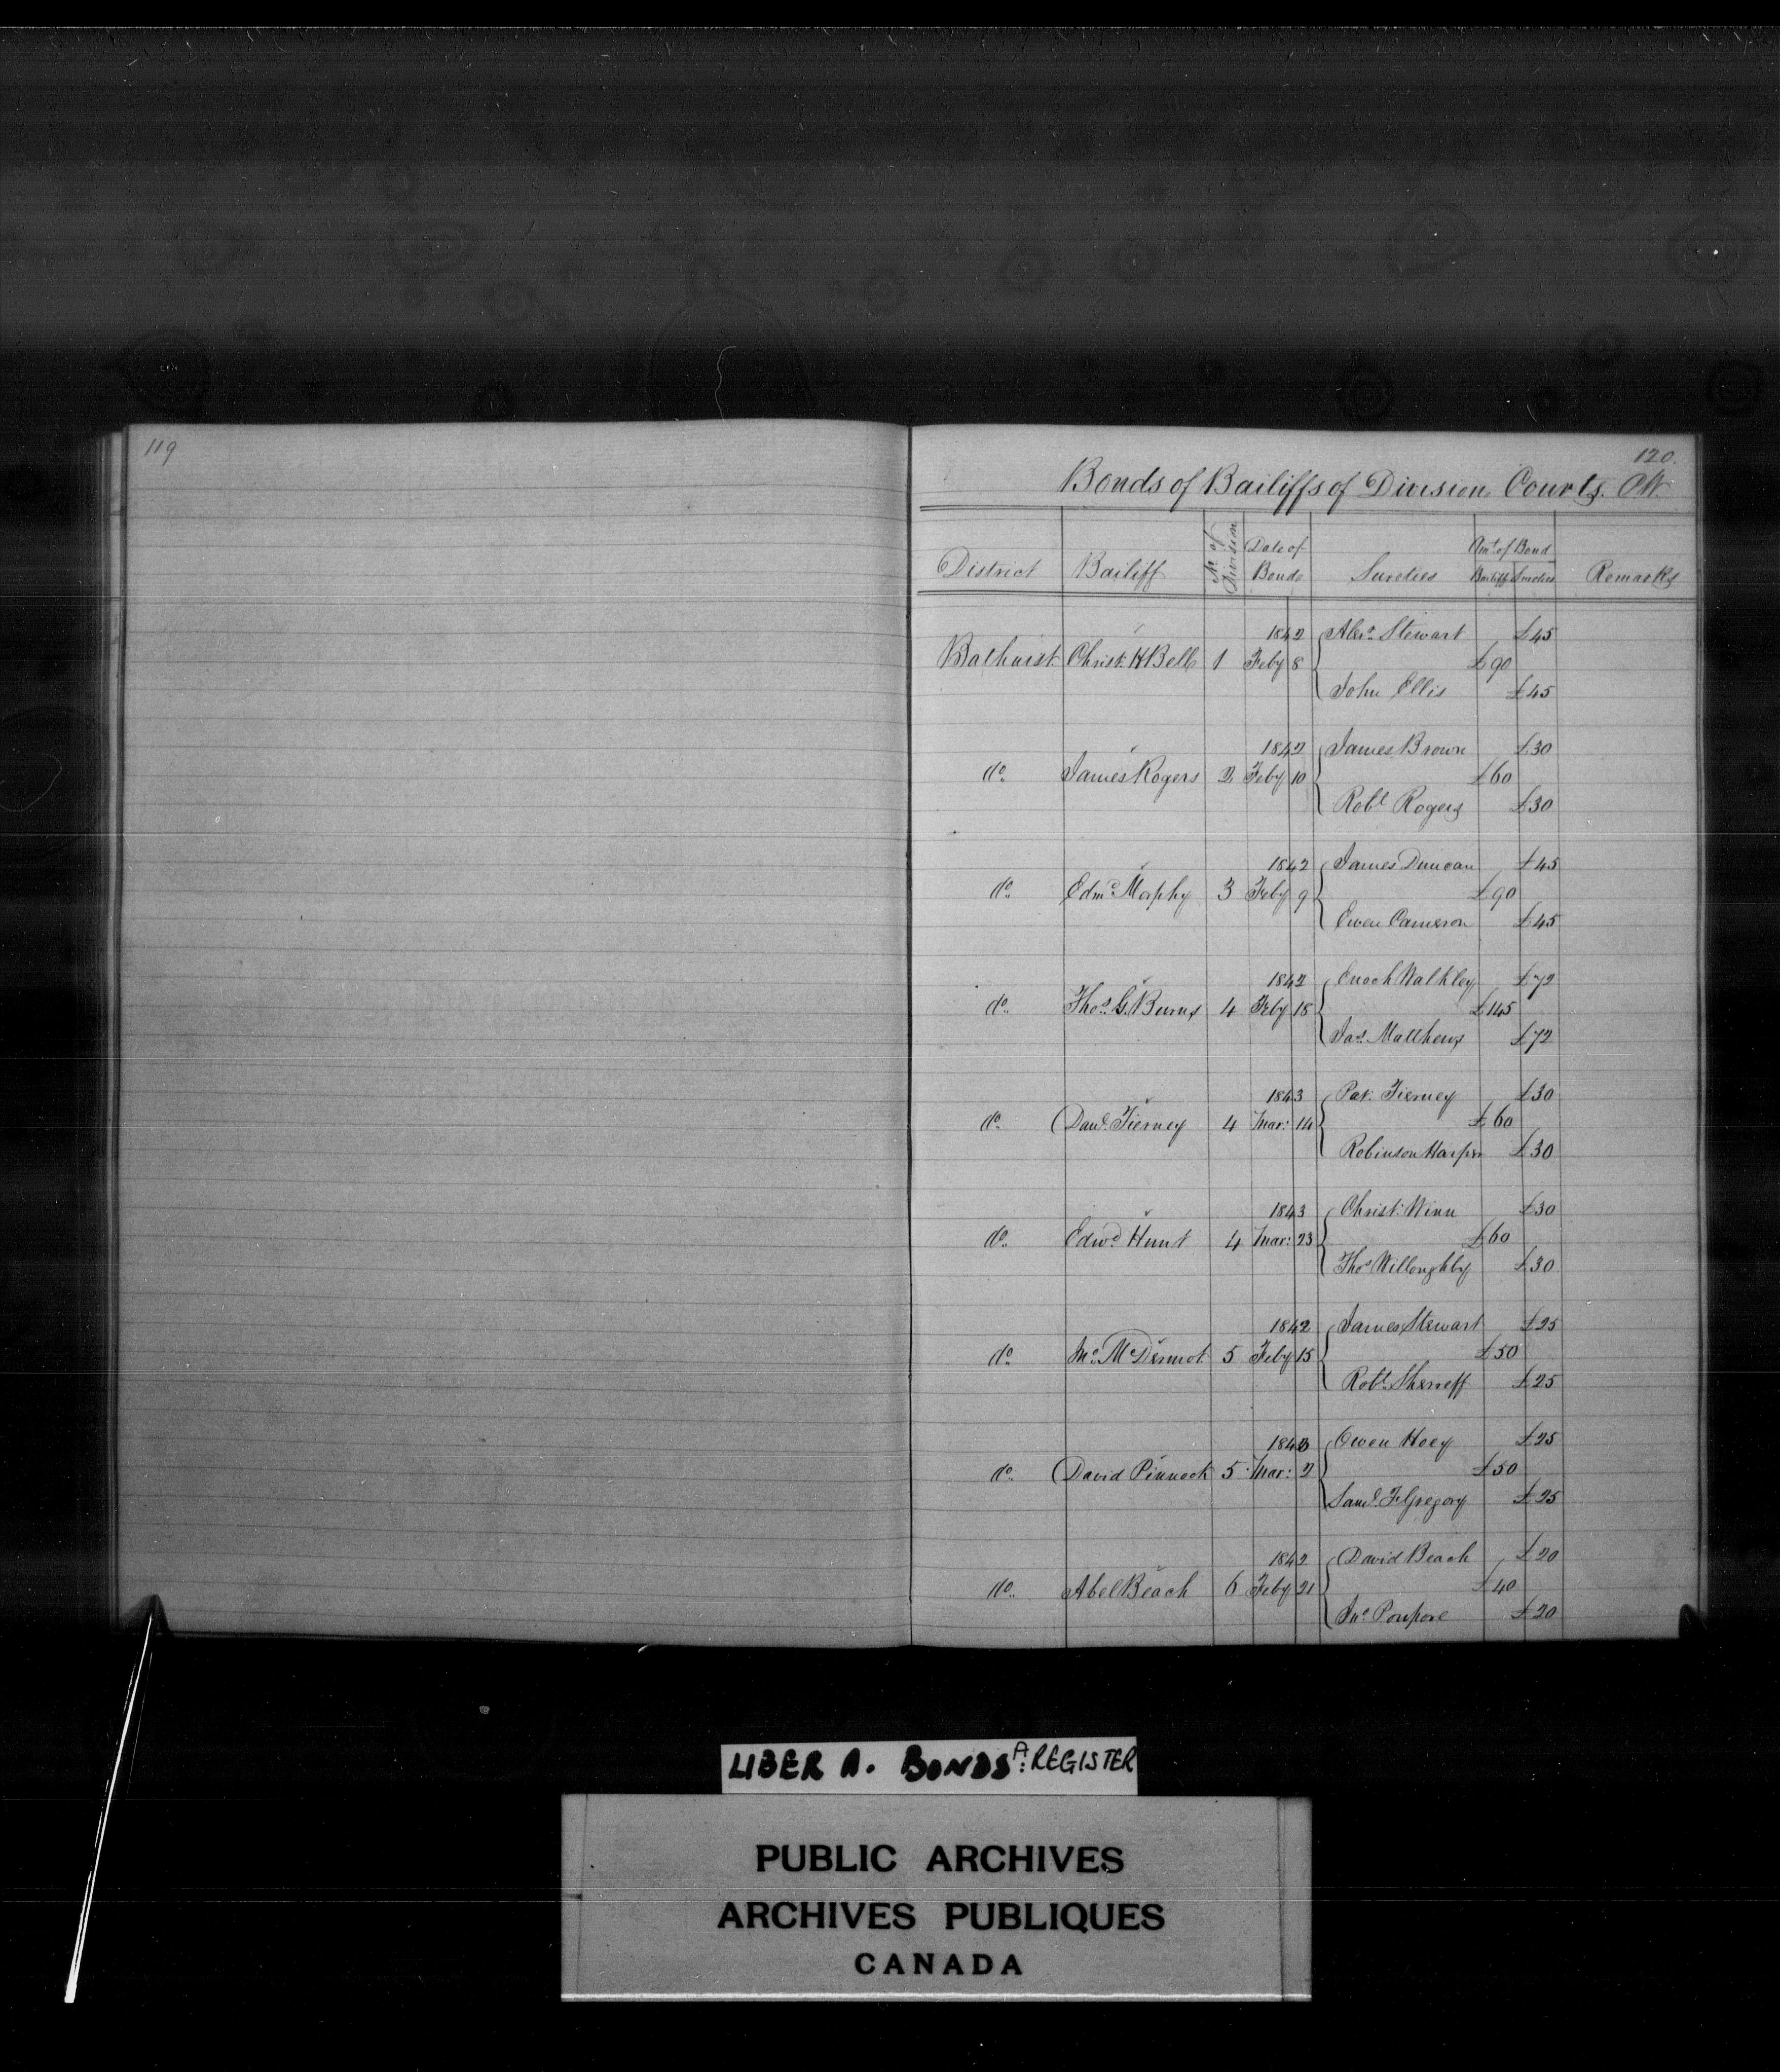 119
120.
Bonds of Bailiffs of Division Courts. CW.
District Bailiff No. of Division Date of Bonds Sureties Amt. of Bond Bailiff Sureties Remarks
1842 Alexr. Stewart £45
Bathurst Christ. H Bell 1 Feby 8 £90
John Ellis £45
1842 James Brown £30
do. James Rogers 2 Feby 10 £60
Robt. Rogers £30
1842 James Duncan £45
do. Edmd. Morphy 3 Feby 9 £90
Ewen Cameron £45
1842 Enoch Walkley £72
do. Thos. G. Burns 4 Feby 18 £145
Jas. Matthews £72
1843 Pat. Tierney £30
do. Danl. Tierney 4 Mar: 14 £60
Robinson Harper £30
1843 Christ. Winn £30
do. Edwd. Hunt 4 Mar: 23 £60
Thos. Willoughby £30
1842 James Stewart £25
do. Jno. McDermot 5 Feby 15 £50
Robt. Sherreff £25
1843 Owen Hoey £25
do. David Pinnock 5 Mar: 2 £50
Saml. F Gregory £25
1842 David Beach £20
do. Abel Beach 6 Feby 21 £40
Jno. Poupore £20
LIBER A. BONDS A: REGISTER
PUBLIC ARCHIVES
ARCHIVES PUBLIQUES
CANADA